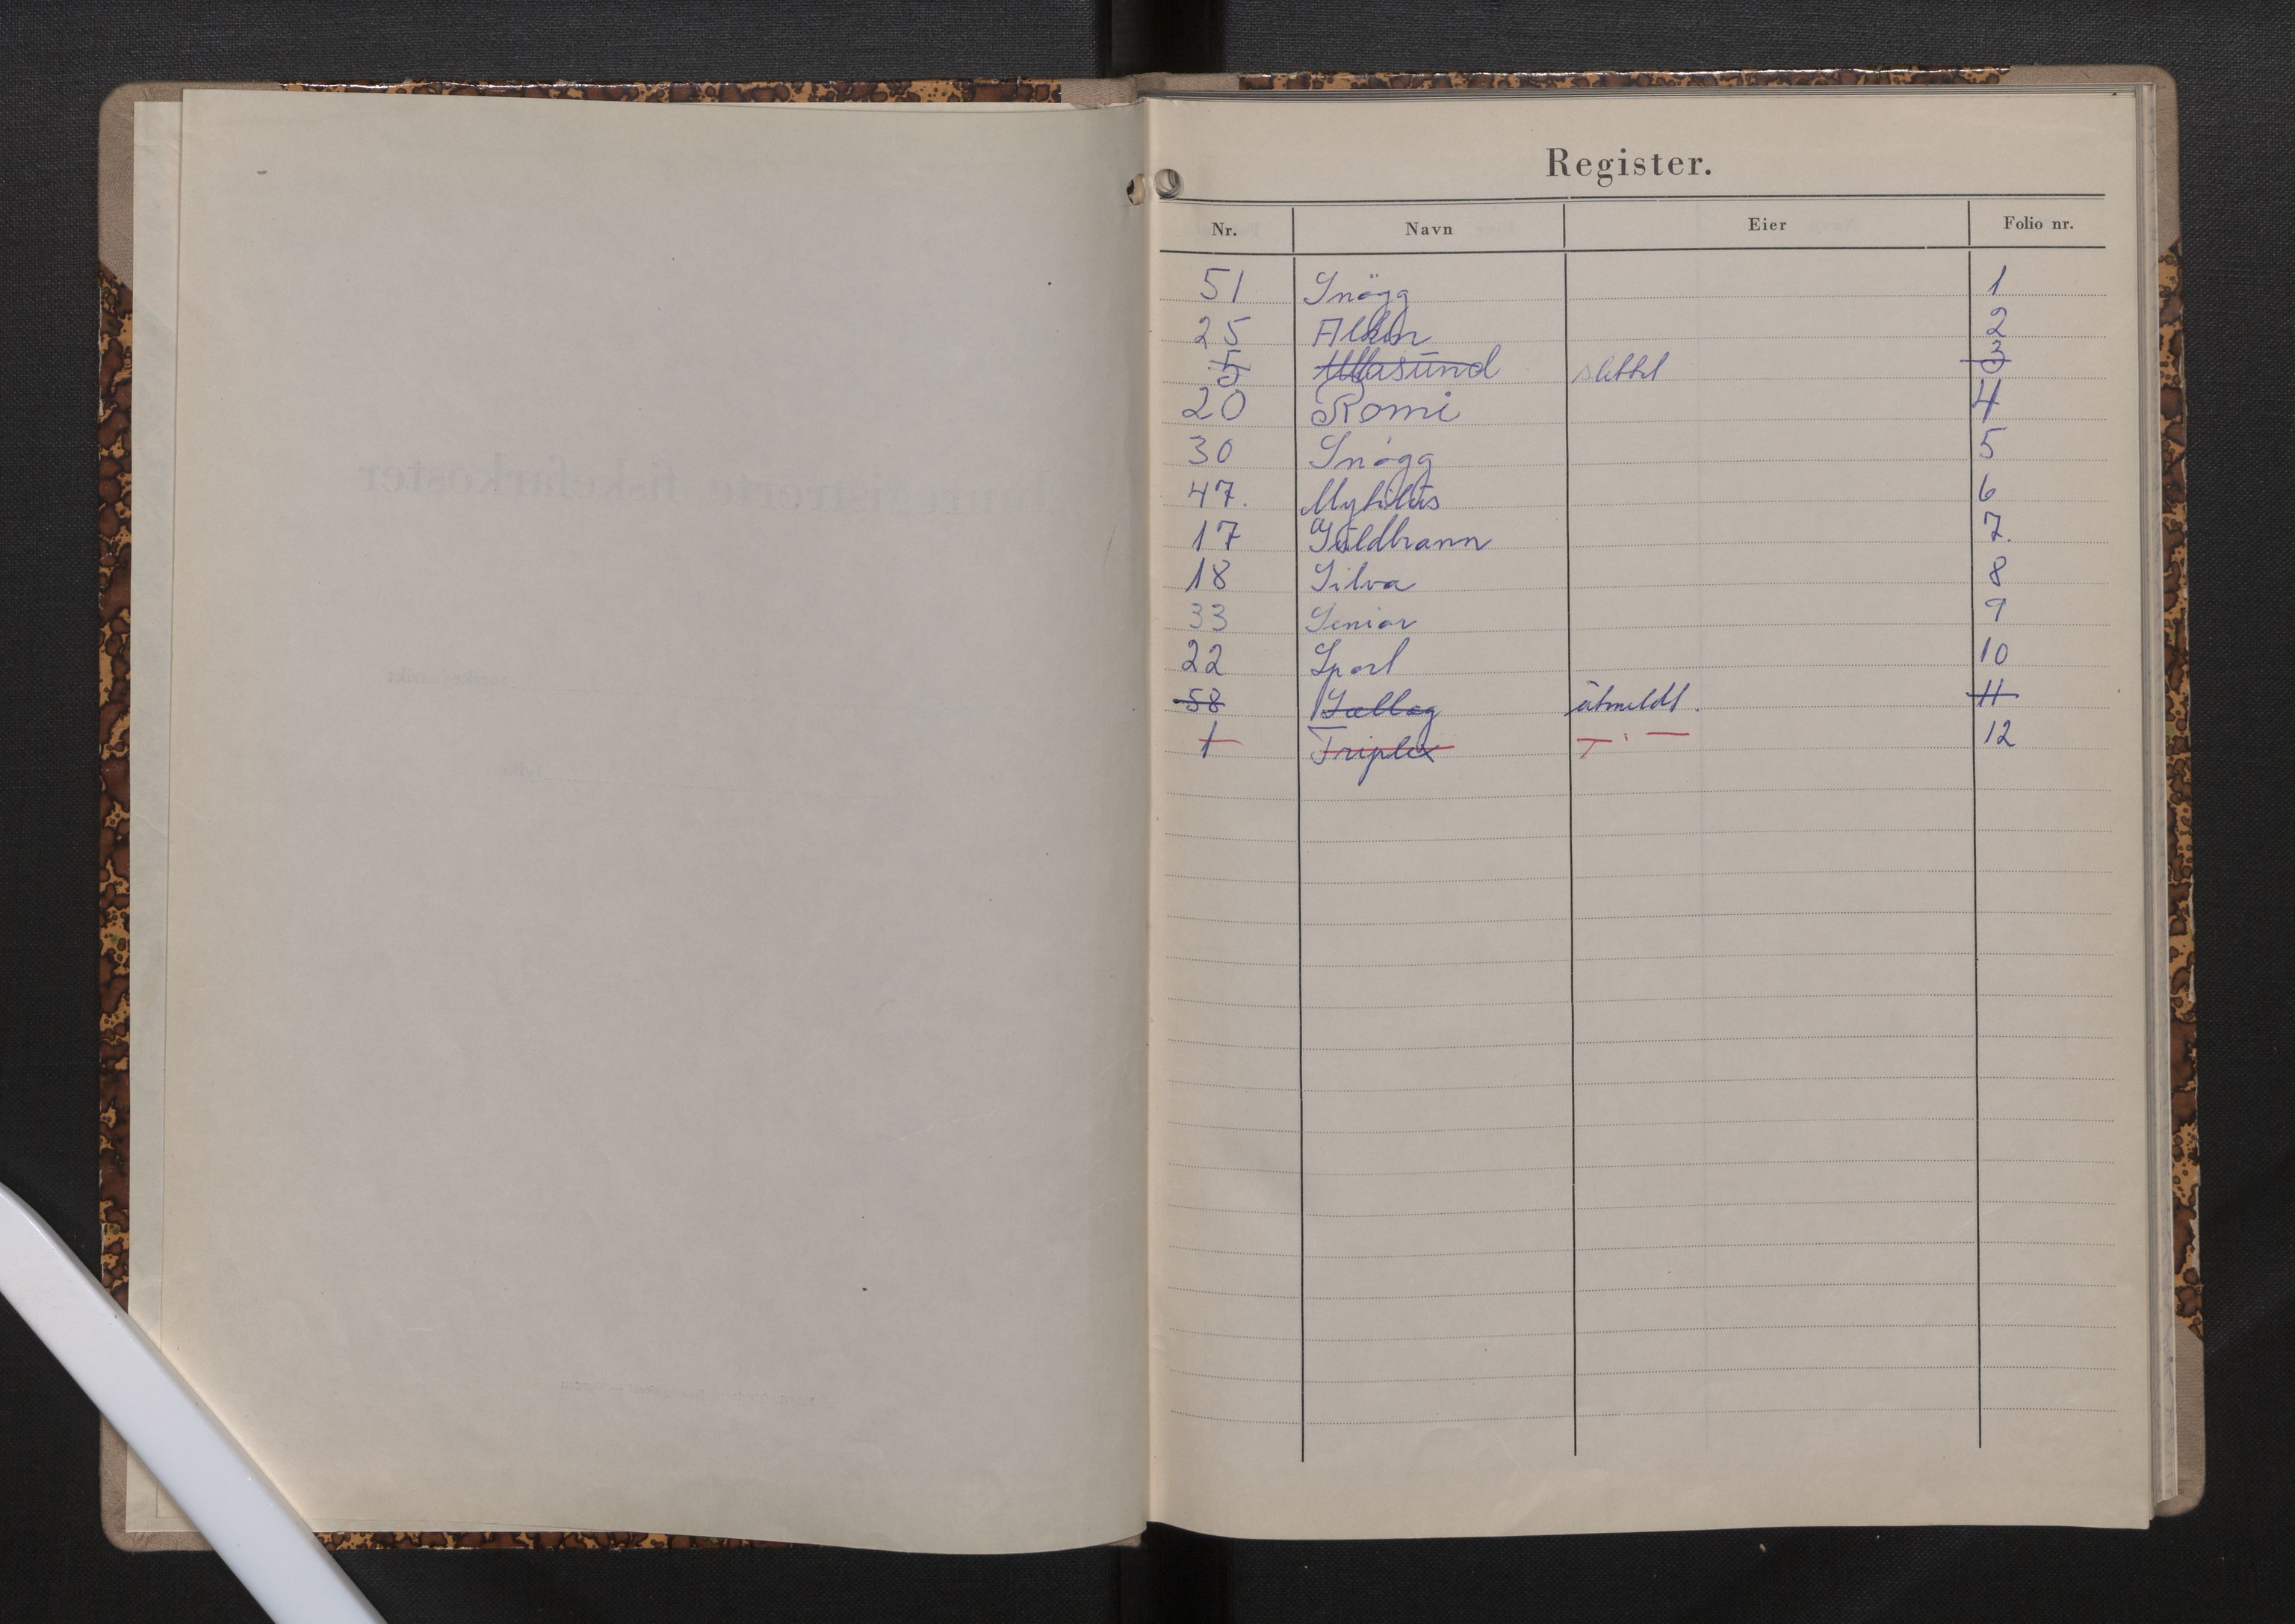 Register.
Nr. Navn Eier Folio nr.
51 Snögg 1
25 2
5 slettet 3
20 Romi 4
30 Snögg 5
47. Mytilus 6
17 Guldbrann 7.
18 Silva 8
33 Senior 9
22 Sport 10
58 utmeldt. 11
1 Triplex 12
fiskefarkoster